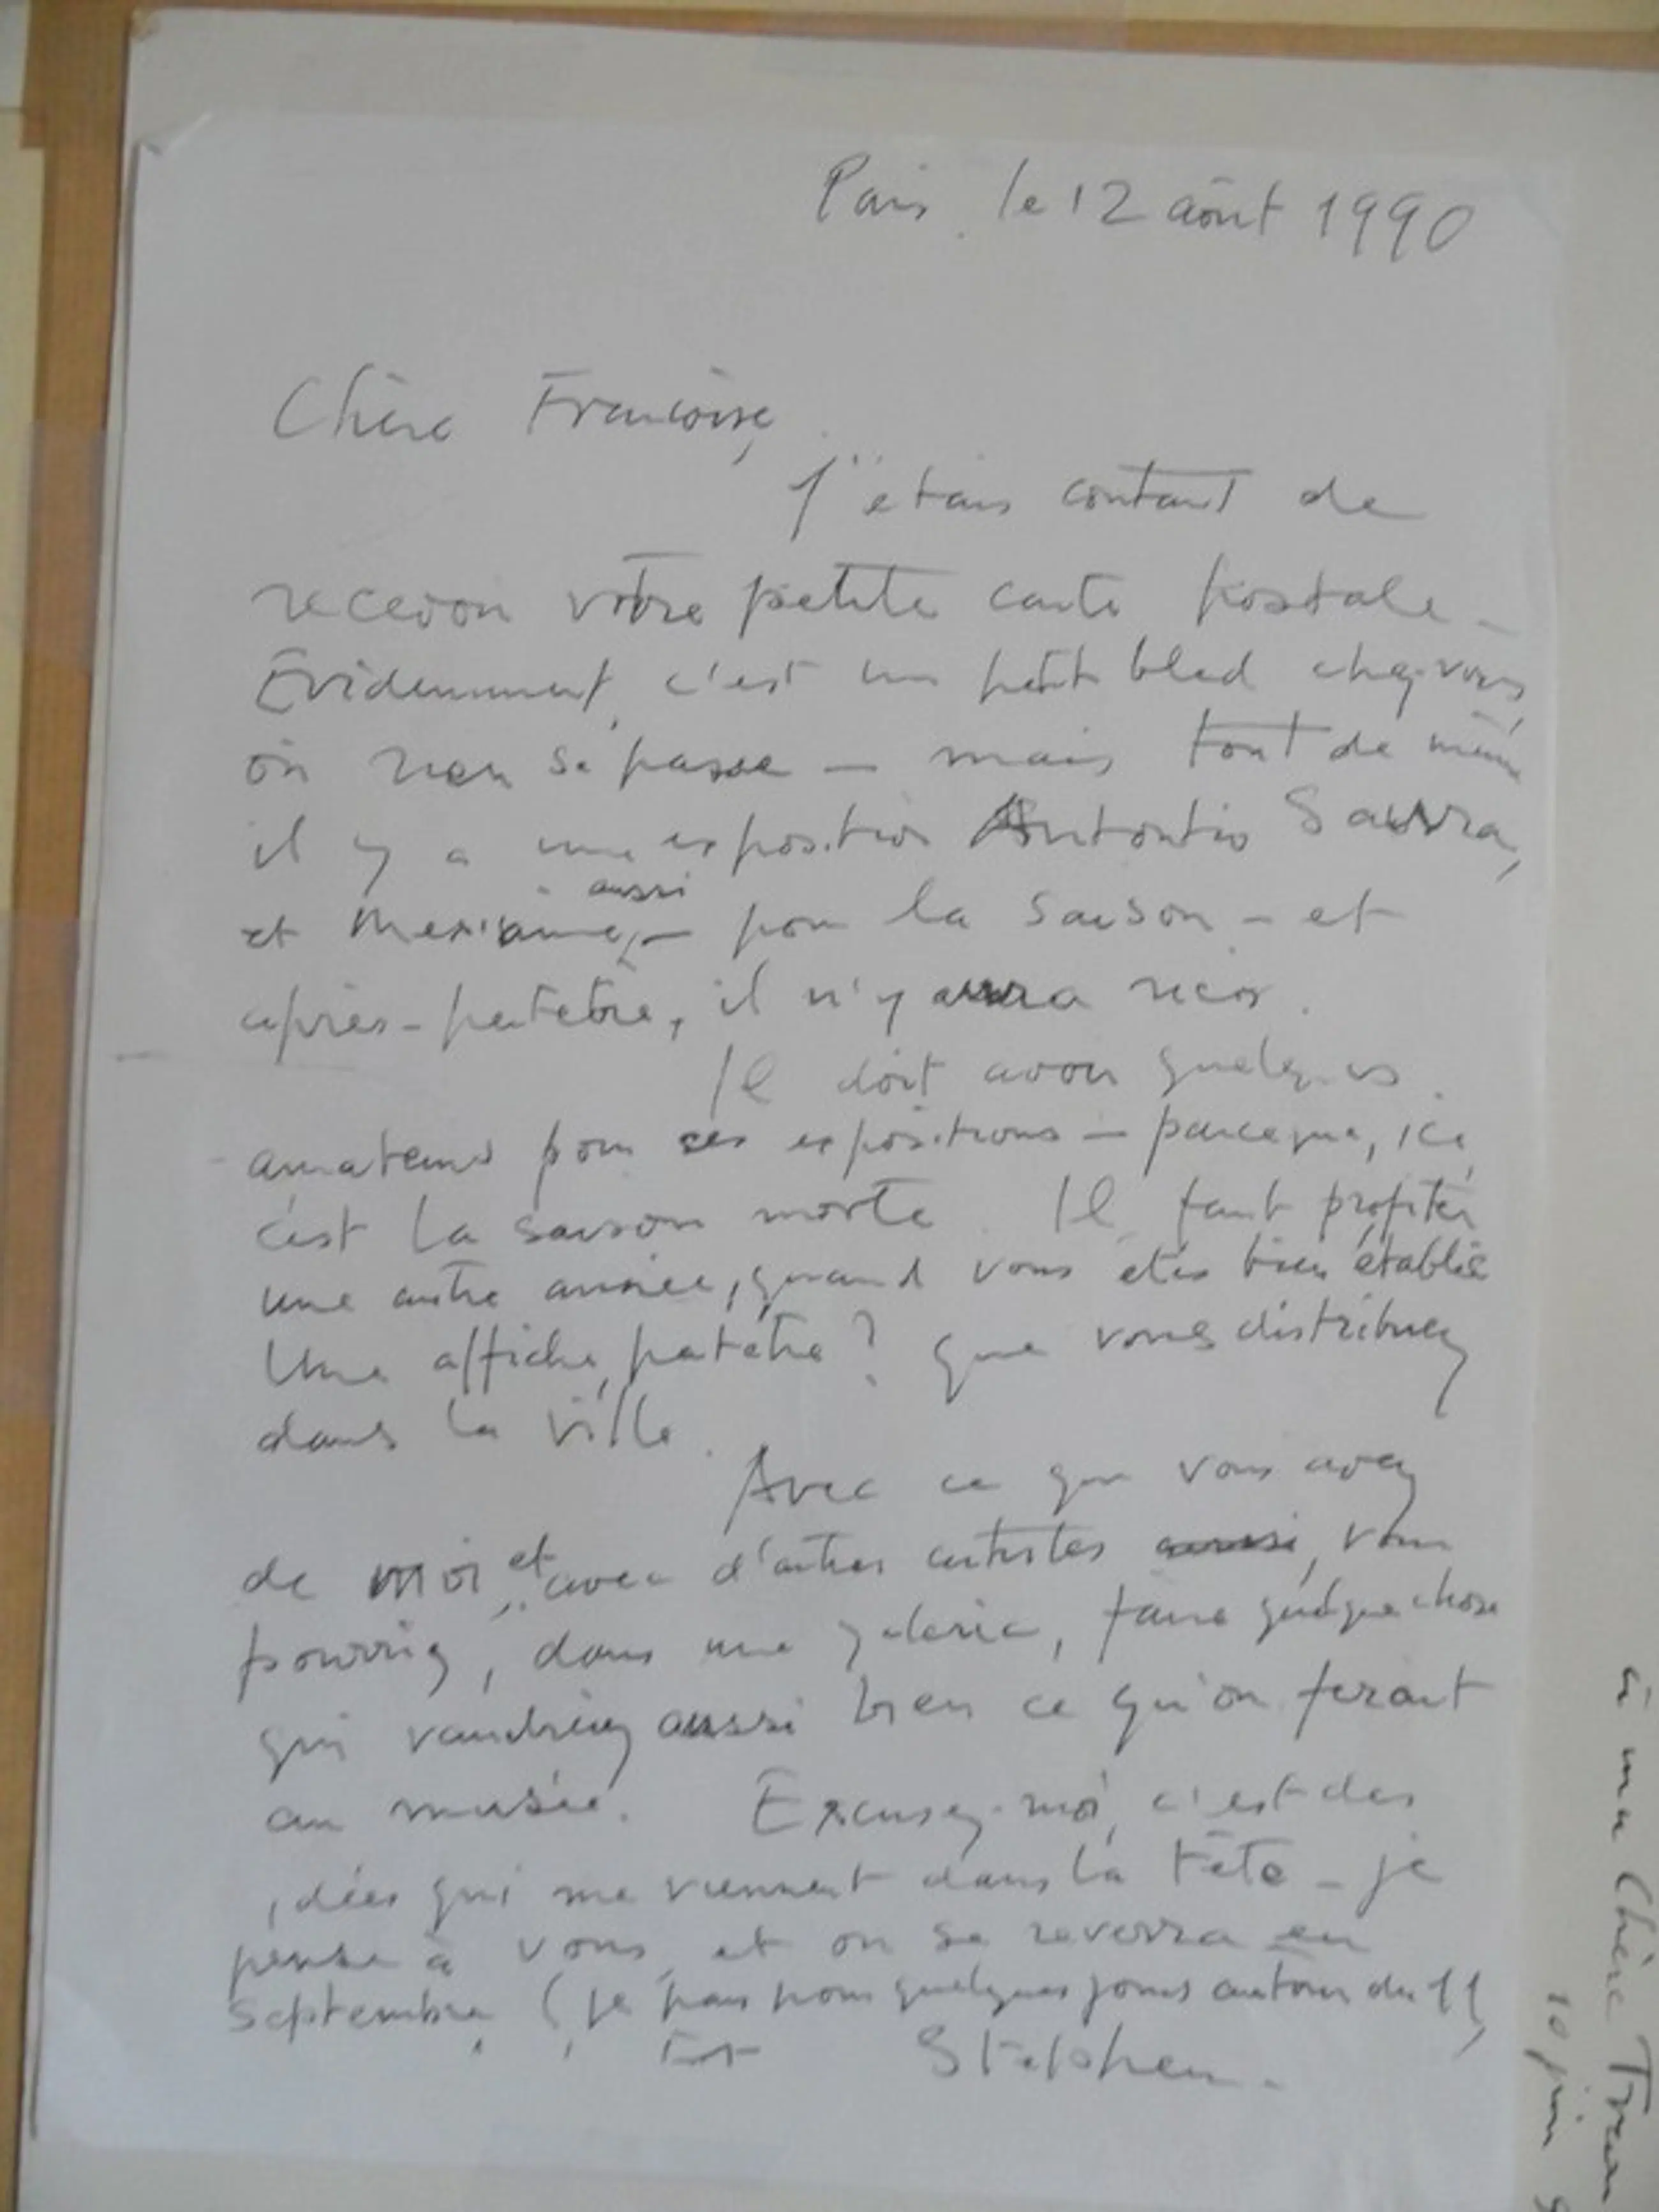 Paris, le 12 août 1990
Chère Françoise,
J'étais contant de
recevoir votre petite carte postale –
Évidemment, c'est un petit bled chez-vous,
où rien se passe – mais tout de même
il y a une exposition Antontio Saura,
et aussi – pour la saison – et
après – peutetre, il n'y aura rien.
Il doit avoir quelques
amateurs pour ses expositions – parceque, ici,
c'est la saison morte. Il faut profiter
une autre année, quand vous étes bien établie
Une affiche, patetre? que vous distribuez
dans la ville.
Avec ce que vous avez
de moi, et avec d'autres artistes aussi, vous
pourriez, dans une galerie, faire quelque chose
qui vaudriez aussi bien ce qu'on ferait
au musée. Excusez-moi, c'est des
idées qui me viennent dans la tête – je
pense à vous, et on se reverra en
Septembre, (je pars pour quelques jours autour du 11)
Stephen –
à ma Chère Fran
10 juin